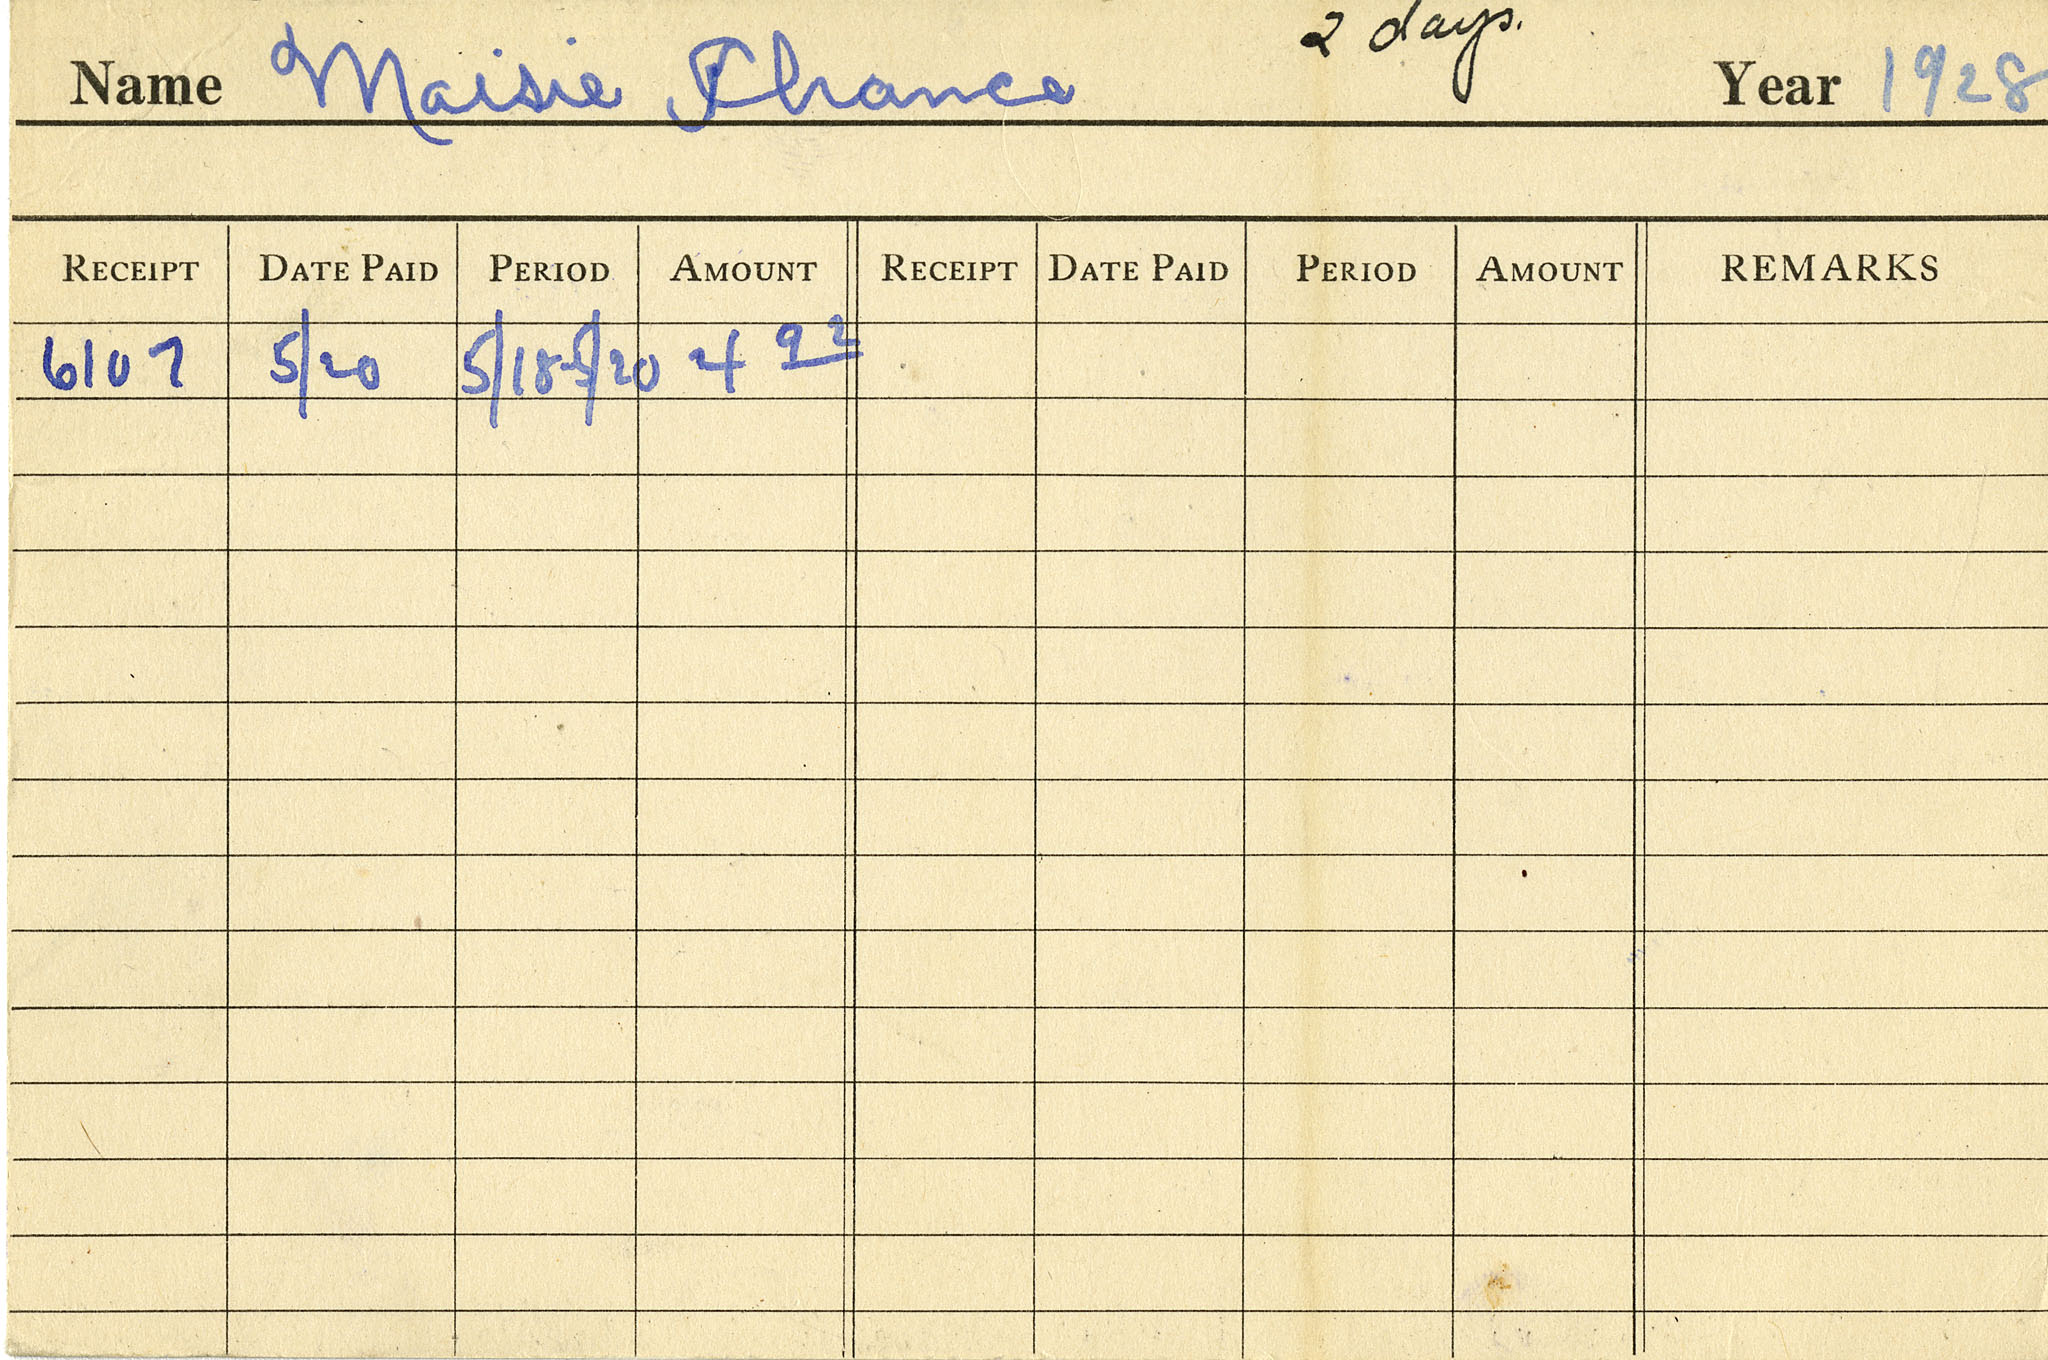 2 days.
Name Maisie France Year 1928
RECEIPT DATE PAID PERIOD AMOUNT RECEIPT DATE PAID PERIOD AMOUNT REMARKS
6107 5/20 5/18-5/20 4 92